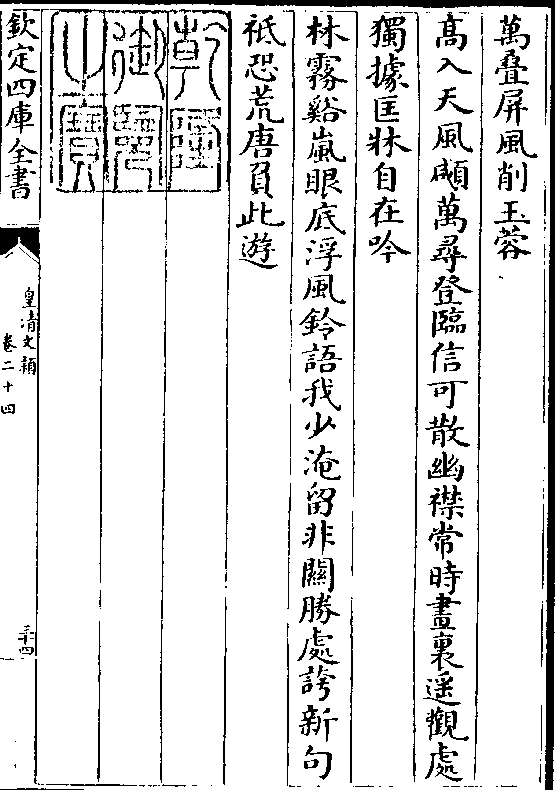 萬疊屏風削玉蓉
髙入天風頗萬尋登臨信可散幽襟常時畫裏遥觀處
獨據匡牀自在吟
林霧谿嵐眼底浮風鈴語我少淹留非關勝處誇新句
祗恐荒唐負此遊
乾隆
御覽
之寶
欽定四庫全書
皇清文穎
卷二十四
三十四